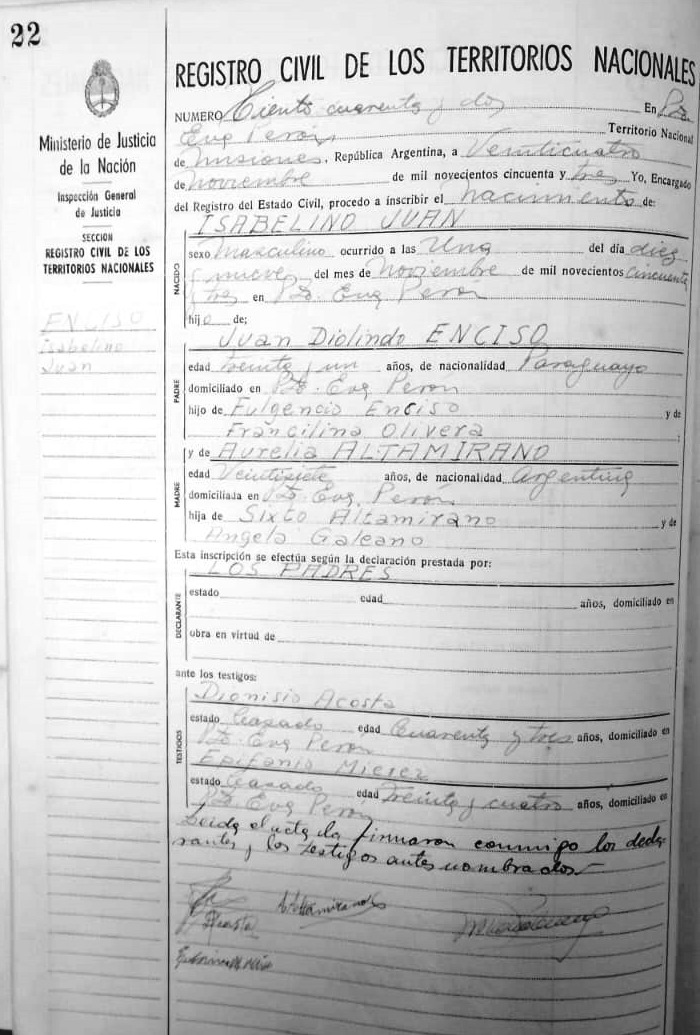 22
Ministerio de Justicia
de la Nación
Inspección General
de Justicia
SECCION
REGISTRO CIVIL DE LOS
TERRITORIOS NACIONALES
ENCISO
Isabelino
Juan
REGISTRO CIVIL DE LOS TERRITORIOS NACIONALES
NUMERO Ciento cuarenta y dos En Pto.
Eva Perón Territorio Nacional
de Misiones, República Argentina, a Veinticuatro
de noviembre de mil novecientos cincuenta y tres Yo, Encargado
del Registro del Estado Civil, procedo a inscribir el nacimiento de:
NACIDO
ISABELINO JUAN
sexo Masculino ocurrido a las Una del día diez
nueve del mes de Noviembre de mil novecientos cincuenta
tres en Pto. Eva Perón
hijo de;
PADRE
Juan Diolindo ENCISO
edad treinta y un años, de nacionalidad Paraguayo
domiciliado en Pto. Eva Perón
hijo de Fulgencio Enciso y de
Francilina Olivera ;
MADRE
y de Aurelia ALTAMIRANO
edad Veintisiete años, de nacionalidad Argentina
domiciliada en Pto. Eva Perón
hija de Sixto Altamirano y de
Angela Galeano
Esta inscripción se efectúa según la declaración prestada por:
DECLARANTE
LOS PADRES
estado edad años, domiciliado en
obra en virtud de
ante los testigos:
TESTIGOS
Dionisio Acosta
estado Casado edad Cuarenta y tres años, domiciliado en
Pto. Eva Perón
Epifanio
estado Casado edad treinta y cuatro años, domiciliado en
Pto. Eva Perón
Leida el acta la firmaron conmigo los decla-
rantes y los testigos antes nombrados.-
A. Altamirano
DAcosta